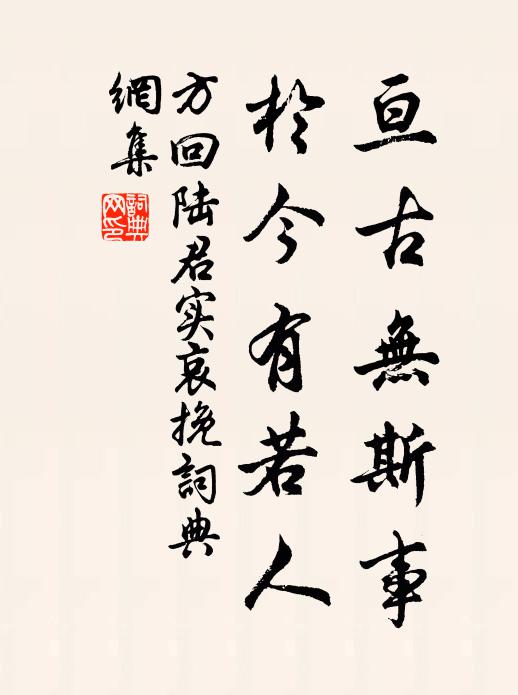 亘古無斯事
於今有若人
方回陆君实哀挽詞典
網集
詞典
网印